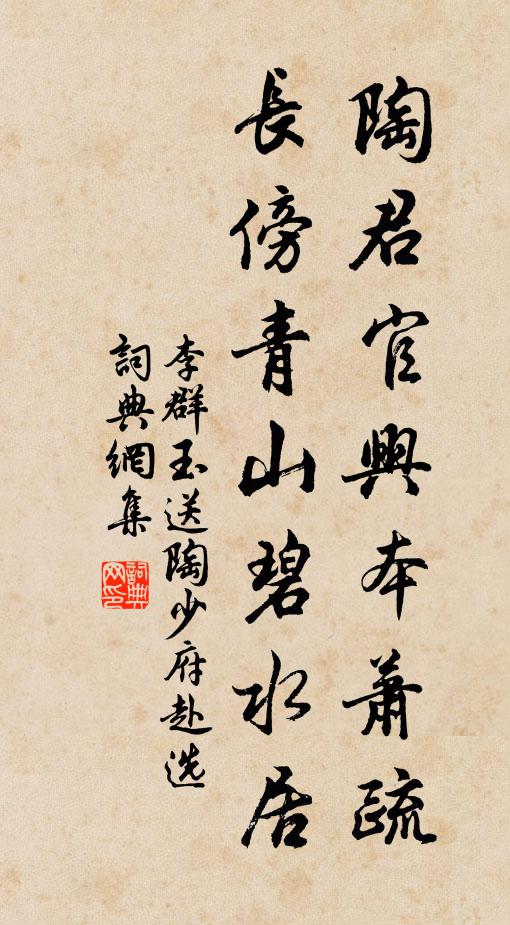 陶君官興本蕭疏
長傍青山碧水居
李群玉送陶少府赴选
詞典網集
詞典网印